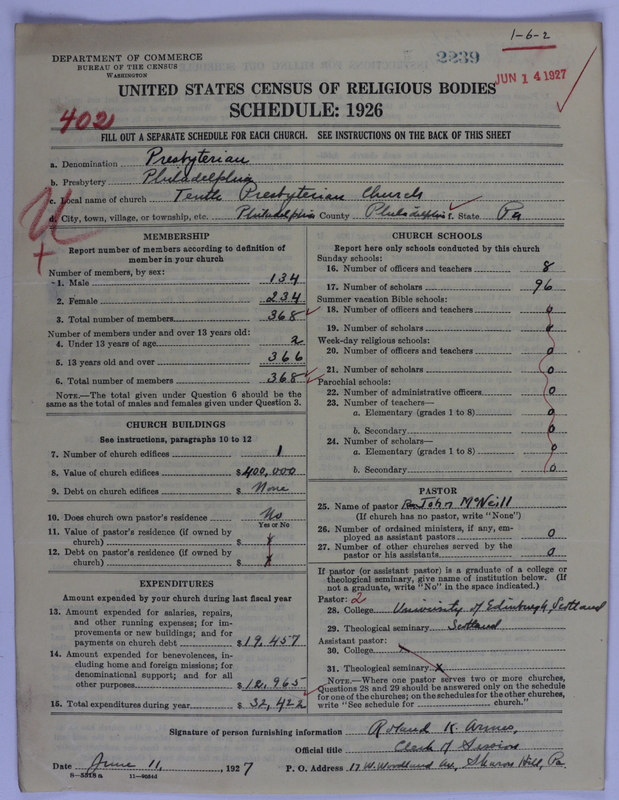 1-6-2
2239
JUN 14 1927
DEPARTMENT OF COMMERCE
BUREAU OF THE CENSUS
WASHINGTON
UNITED STATES CENSUS OF RELIGIOUS BODIES
SCHEDULE: 1926
402
FILL OUT A SEPARATE SCHEDULE FOR EACH CHURCH. SEE INSTRUCTIONS ON THE BACK OF THIS SHEET
a. Denomination Presbyterian
b. Presbytery Philadelphia
c. Local name of church Tenth Presbyterian Church
d. City, town, village, or township, etc. Philadelphia County Philadelphia f. State Pa
MEMBERSHIP
Report number of members according to definition of
member in your church
Number of members, by sex:
1. Male 134
2. Female 234
3. Total number of members 368
Number of members under and over 13 years old:
4. Under 13 years of age 2
5. 13 years old and over 366
6. Total number of members 368
NOTE.—The total given under Question 6 should be
same as the total of males and females given under Question 3.
CHURCH BUILDINGS
See instructions, paragraphs 10 to 12
7. Number of church edifices 1
8. Value of church edifices $400,000
9. Debt on church edifices $ None
10. Does church own pastor's residence No
Yes or No
11. Value of pastor's residence (if owned by
church) $ x
12. Debt on pastor's residence (if owned by
church) $ x
EXPENDITURES
Amount expended by your church during last fiscal year
13. Amount expended for salaries, repairs,
and other running expenses; for im-
provements or new buildings; and for
payments on church debt $19,457
14. Amount expended for benevolences, in-
cluding home and foreign missions; for
denominational support; and for all
other purposes $12,965
15. Total expenditures during year $ 32,422
CHURCH SCHOOLS
Report here only schools conducted by this church
Sunday schools:
16. Number of officers and teachers 8
17. Number of scholars 96
Summer vacation Bible schools:
18. Number of officers and teachers 0
19. Number of scholars 0
Week-day religious schools:
20. Number of officers and teachers 0
21. Number of scholars 0
Parochial schools:
22. Number of administrative officers 0
23. Number of teachers—
a. Elementary (grades 1 to 8) 0
b. Secondary 0
24. Number of scholars—
a. Elementary (grades 1 to 8) 0
b. Secondary 0
PASTOR
25. Name of pastor Rev John McNeill
(If church has no pastor, write "None")
26. Number of ordained ministers, if any, em-
ployed as assistant pastors 0
27. Number of other churches served by the
pastor or his assistants 0
If pastor (or assistant pastor) is a graduate of a college or
theological seminary, give name of institution below. (If
not a graduate, write "No" in the space indicated.)
Pastor: 2
28. College University of Edinburgh, Scotland
29. Theological seminary Scotland
Assistant pastor:
30. College
31. Theological seminary x
NOTE.—Where one pastor serves two or more churches,
Questions 28 and 29 should be answered only on the schedule
for one of the churches; on the schedules for the other churches,
write "See schedule for church."
Signature of person furnishing information Roland K. Armes,
Official title Clerk of Session
Date June 11, 1927 P. O. Address 17 W. Woodland Ave, Sharon Hill, Pa
8-5318a 11-9054d